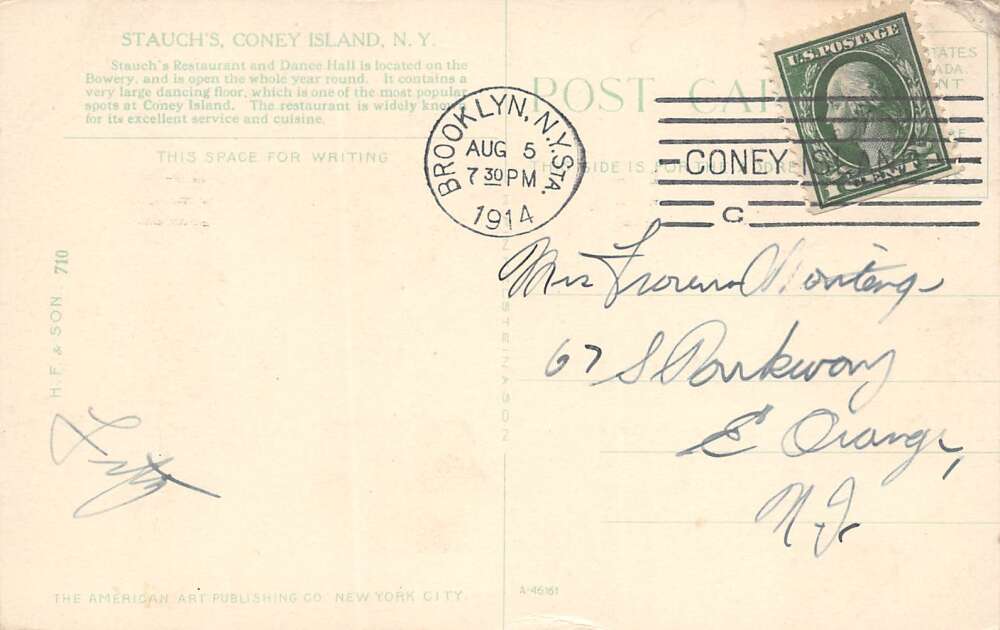 STAUCH'S, CONEY ISLAND, N. Y.
Stauch's Restaurant and Dance Hall is located on the
Bowery, and is open the whole year round. It contains a
very large dancing floor, which is one of the most popular
spots at Coney Island. The restaurant is widely known
for its excellent service and cuisine.
THIS SPACE FOR WRITING
POST CAR
THIS SIDE IS FOR THE ADDRESS
BROOKLYN, N.Y. STA.
AUG 5
7 30 PM
1914
CONEY ISLAND
C
U.S. POSTAGE
1 CENT 1
Mrs
67 S Parkway
E Orange,
N.J.
H. F. & SON. 710
THE AMERICAN ART PUBLISHING CO. NEW YORK CITY.
A-46161